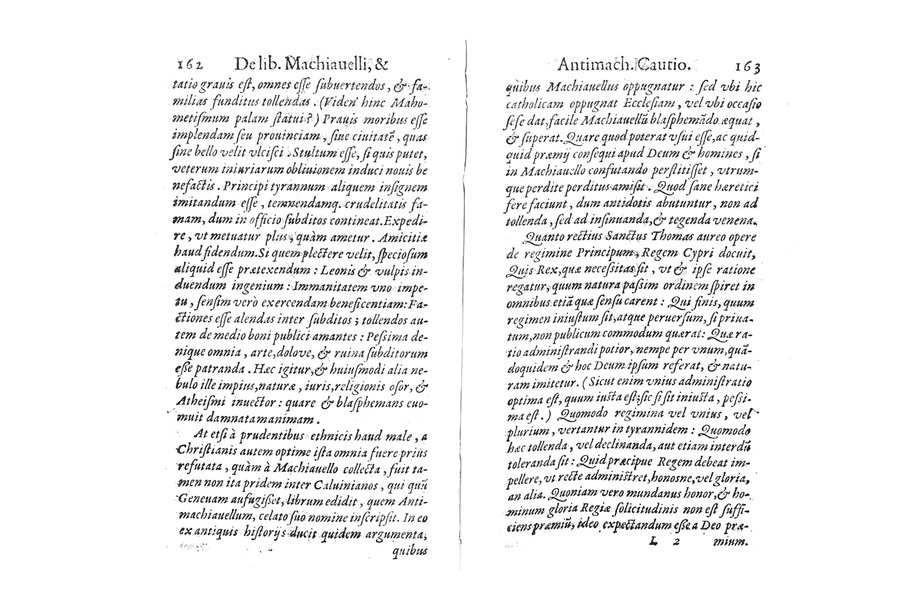 162 De lib. Machiauelli, &
tatio grauis est, omnes esse subuertendos, & fa-
milias funditus tollendas. (Viden' hinc Maho-
metismum palam statui?) Prauis moribus esse
implendam seu prouinciam, siue ciuitatē, quas
sine bello velit vlcisci. Stultum esse, si quis putet,
veterum iniuriarum obliuionem induci nouis be
nefactis. Principi tyrannum aliquem insignem
imitandum esse, temnendamq. crudelitatis fa-
mam, dum in officio subditos contineat. Expedi-
re, vt metuatur plus, quàm ametur. Amicitiæ
haud fidendum. Si quem plectere velit, speciosum
aliquid esse prætexendum: Leonis & vulpis in-
duendum ingenium: Immanitatem vno impe-
tu, sensim verò exercendam beneficentiam: Fa-
ctiones esse alendas inter subditos; tollendos au-
tem de medio boni publici amantes: Pessima de-
nique omnia, arte, dolove, & ruina subditorum
esse patranda. Hæc igitur, & huiusmodi alia ne-
bulo ille impius, naturæ, iuris, religionis osor, &
Atheismi inuector: quare & blasphemans euo-
muit damnatam animam.
At etsi à prudentibus ethnicis haud male, a
Christianis autem optime ista omnia fuere prius
refutata, quàm à Machiauello collecta, fuit ta-
men non ita pridem inter Caluinianos, qui quū
Geneuam aufugisset, librum edidit, quem Anti-
machiauellum, celato suo nomine inscripsit. In eo
ex antiquis historijs ducit quidem argumenta,
quibus
Antimach. Cautio. 163
quibus Machiauellus oppugnatur: sed vbi hic
catholicam oppugnat Ecclesiam, vel vbi occasio
sese dat, facile Machiauellū blasphemādo æquat,
& superat. Quare quod poterat vsui esse, ac quid-
quid præmij consequi apud Deum & homines, si
in Machiauello confutando perstitisset, vtrum-
que perdite perditus amisit. Quod sane hæretici
fere faciunt, dum antidotis abutuntur, non ad
tollenda, sed ad insinuanda, & tegenda venena.
Quanto rectius Sanctus Thomas aureo opere
de regimine Principum, Regem Cypri docuit,
Quis Rex, quæ necessitas sit, vt & ipse ratione
regatur, quum natura passim ordinem spiret in
omnibus etiā quæ sensu carent: Qui finis, quum
regimen iniustum sit, atque peruersum, si priua-
tum, non publicum commodum quærat: Quæ ra-
tio administrandi potior, nempe per vnum, quā-
doquidem & hoc Deum ipsum referat, & natu-
ram imitetur. (Sicut enim vnius administratio
optima est, quum iusta est; sic si sit iniusta, pessi-
ma est.) Quomodo regimina vel vnius, vel
plurium, vertantur in tyrannidem: Quomodo
hæc tollenda, vel declinanda, aut etiam interdū
toleranda sit: Quid præcipue Regem debeat im-
pellere, vt recte administret, honosne, vel gloria,
an alia. Quoniam vero mundanus honor, & ho-
minum gloria Regiæ solicitudinis non est suffi-
ciens præmiū, ideo expectandum esse a Deo præ-
L 2 mium.